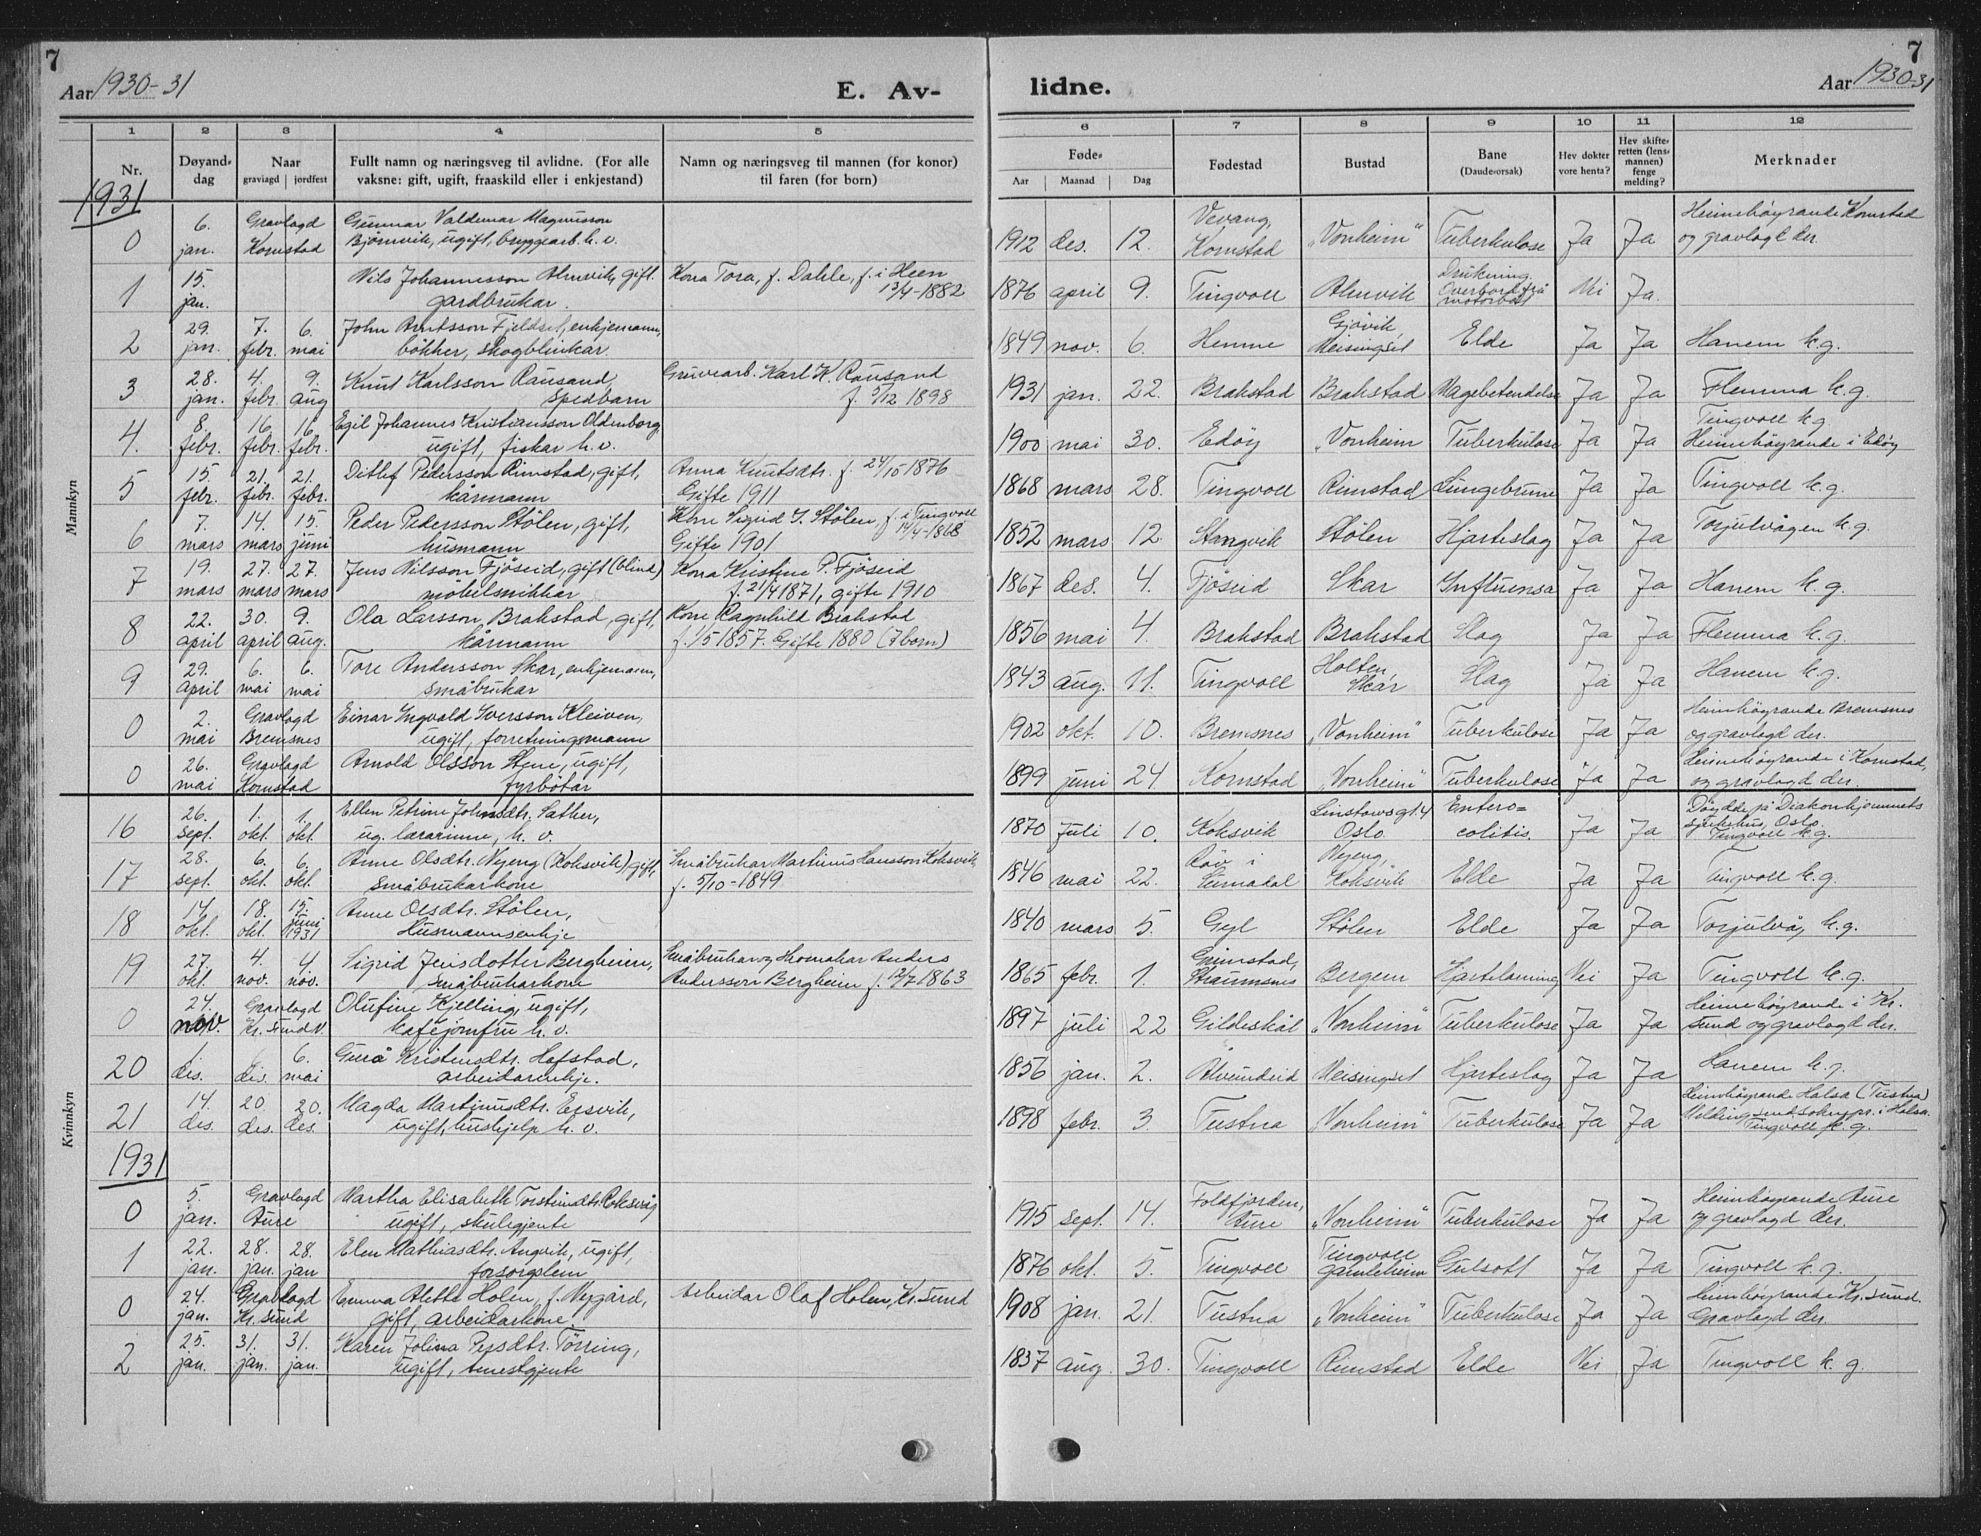 7
7
Aar 1930-31
E. Av-
lidne.
Aar 1930-31
1
2
3
4
5
6
7
8
9
10
11
12
Nr.
Døyand-
dag
Naar
gravlagd
jordfest
Fullt namn og næringsveg til avlidne. (For alle
vaksne: gift, ugift, fraaskild eller i enkjestand)
Namn og næringsveg til mannen (for konor)
til faren (for born)
Føde-
Aar
Maanad
Dag
Fødestad
Bustad
Bane
(Daude-orsak)
Hev dokter
vore henta?
Hev skifte-
retten (lens-
mannen)
fenge
melding?
Merknader
Mannkyn
1931
0 6. jan. Gravlagd Kornstad
Gunnar Valdemar Magnusson
Bjørnvik, ugift, bryggearb. h. v.
1912 des. 12. Vevang, Kornstad "Vonheim" Tuberkulose Ja Ja Heimehøyrande Kornstad
og gravlagt der.
1 15. jan.
Nils Johannesson Almvik, gift.
gardbrukar.
Kona Tora, f. Dahle, f. i Heen
13/4-1882
1876 april 9. Tingvoll Almvik Drukning. Overbord frå motorbåt Nei Ja.
2 29. jan. 7. febr. 6. mai
John Arntsson Fjeldset, enkjemann,
bøkker, skogblinkar.
1849 nov. 6. Hemne Gjøvik, Meisingset Elde Ja Ja Hanem k.g.
3 28. jan. 4. febr. 9. aug
Knut Karlsson Rausand,
spedbarn
Gruvearb. Karl K. Rausand
f. /12 1898
1931 jan. 22. Brakstad Brakstad Magebetendelse Ja Ja Flemma k.g.
4. 8. febr. 16. febr. 16. febr.
Egil Johannes Kristiansson Oldenborg,
ugift, fiskar h. v.
1900 mai 30. Edøy "Vonheim Tuberkulose Ja Ja Tingvoll k.g.
Heimehøyrande i Edøy
5 15. febr. 21. febr. 21. febr.
Ditlef Pedersson Rimstad, gift,
kårmann
Anna Knutsdtr. f. 24/10 1876
Gifte 1911
1868 mars 28. Tingvoll Rimstad Lungebrune Ja Ja Tingvoll k.g.
6 7. mars 14. mars 15. juni
Peder Pedersson Stølen, gift,
husmann
Kone Sigrid J. Stølen, f. i Tingvoll
14/4-1868
Gifte 1901
1852 mars 12. Stangvik Stølen Hjarteslag Ja Ja Torjulvågen k.g.
7 19. mars 27. mars 27. mars
Jens Nilsson Fjøseid, gift (blind)
møbelsnikkar
Kona Kristine P. Fjøseid
f. 21/4 1871, gifte 1910
1867 des. 4. Fjøseid Skar Influensa Ja Ja Hanem k.g.
8 22. april 30. april 9. aug.
Ola Larsson Brakstad, gift,
kårmann
Kone Ragnhild Brakstad
f. 1/5 1857. Gifte 1880 (7 born)
1856 mai 4. Brakstad Brakstad Slag Ja Ja Flemma k.g.
9 29. april 6. mai 6. mai
Tore Andersson Skar, enkjemann,
småbrukar
1843 aug. 11. Tingvoll Holten, Skar Slag Ja Ja Hanem k.g.
0 2. mai Gravlagd Bremsnes
Einar Ingvald Iversson Kleiven,
ugift, forretningsmann
1902 okt. 10. Bremsnes "Vonheim" Tuberkulose Ja Ja Heimehøyrande Bremsnes
og gravlagd der.
0 26. mai Gravlagd Kornstad
Arnold Olsson Stene, ugift,
fyrbøtar
1899 juni 24 Kornstad "Vonheim" Tuberkulose Ja Ja Heimehøyrande i Kornstad,
og gravlagd der.
Kvinnkyn
16 26. sept. 1. okt. 1. okt.
Ellen Petrine Johnsdtr. Sather,
ug. lærarinne, h. v.
1870 juli 10. Koksvik Linstowsgt. 4 Oslo Entero= colitis. Ja Ja Døydde på Diakonhjemmets
sjukehus, Oslo.
Tingvoll k.g.
17 28. sept. 6. okt. 6. okt.
Anne Olsdtr. Nyeng (Koksvik), gift,
småbrukarkone
Småbrukar Martinus Hansson Koksvik,
f. 5/10-1849
1846 mai 22. Røv i Surnadal Nyeng, Koksvik Elde Ja Ja Tingvoll k.g.
18 14. okt. 18. okt. 15. juni 1931
Anne Olsdtr. Stølen,
Husmannsenkje
1840 mars 5. Gyl Stølen Elde Ja Ja Torjulvåg k.g.
19 27. okt. 4. nov. 4 nov.
Sigrid Jensdotter Bergheim,
småbrukarkone
Småbrukar og skomakar Anders
Andersson Bergheim f. 12/7 1863
1865 febr. 1. Grimstad, Straumsnes Bergem Hjartelaming Nei Ja Tingvoll k.g.
0 24. nov. Gravlagd Kr. sund N.
Olufine Kjelling, ugift,
kaféjomfru h. v.
1897 juli 22 Gildeskål "Vonheim" Tuberkulose Ja Ja Heimehøyrande i Kr.
sund og gravlagd der.
20 1. des. 6. des. 6. mai
Guro Kristensdtr. Hafstad,
arbeidarenkje.
1856 jan. 2. Ålvundeid Meisingset Hjarteslag Ja Ja Hanem k.g.
21 14. des. 20. des. 20. des.
Magda Martinusdtr. Ersvik,
ugift, hushjelp h. v.
1898 febr. 3. Tustna "Vonheim" Tuberkulose Ja Ja Heimehøyrande Halsa (Tustna)
Melding send sokngpr. i Halsa.
Tingvoll k.g.
1931
0 5. jan. Gravlagd Aure
Martha Elisabeth Torsteinsdtr. Roksvåg
ugift, skulegjente
1915 sept. 14. Foldfjorden, Aure "Vonheim" Tuberkulose Ja Ja Heimehøyrande Aure
og gravlagd der.
1 22. jan. 28. jan. 28. jan
Elen Mathiasdtr. Angvik, ugift,
forsorgslem
1876 okt. 5. Tingvoll Tingvoll gamleheim Gulsott Ja Ja Tingvoll k.g.
0 24. jan. Gravlagd Kr. sund
Emma Alethe Holen, f. Nygård,
gift, arbeidarkone
Arbeidar Olaf Holen, Kr. sund
1908 jan. 21. Tustna "Vonheim" Tuberkulose Ja Ja Heimehøyrande Kr. sund.
Gravlagd der.
2 25. jan. 31. jan. 31. jan.
Karen Jolina Persdtr. Tørring,
ugift, tenestgjente
1837 aug. 30. Tingvoll Rimstad Elde Nei Ja Tingvoll k.g.